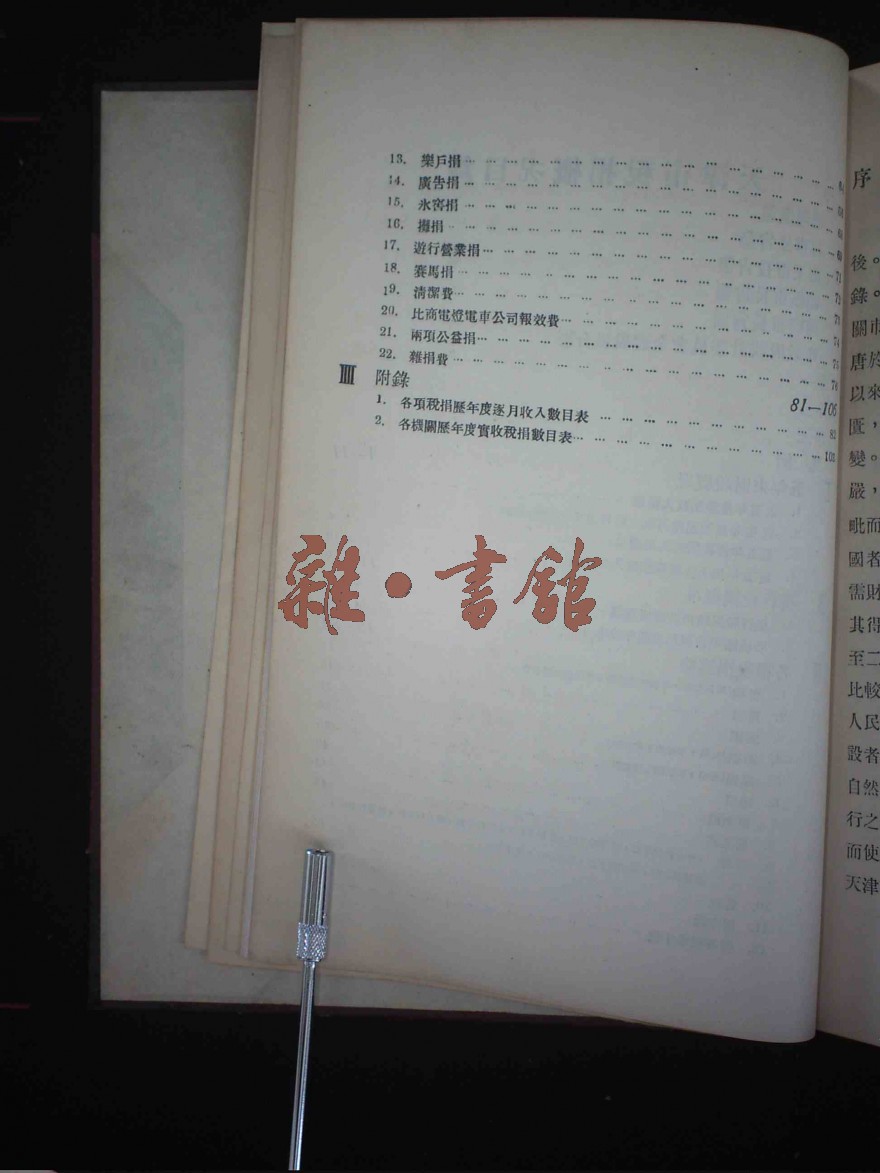 13. 樂戶捐
14. 廣告捐
15. 氷窖捐
16. 攤捐
17. 遊行營業捐 71
18. 賽馬捐
19. 清潔費
20. 比商電燈電車公司報效費
21. 兩項公益捐
22. 雜捐費
III 附錄 81—106
1. 各項稅捐歷年度逐月收入數目表 82
2. 各機關歷年度實收稅捐數目表 103
雜·書館
序
後。
錄。
關市
唐於
以來
匱，
變。
嚴，
毗而
國者
需財
其得
至二
比較
人民
設者
自然
行之
而使
天津